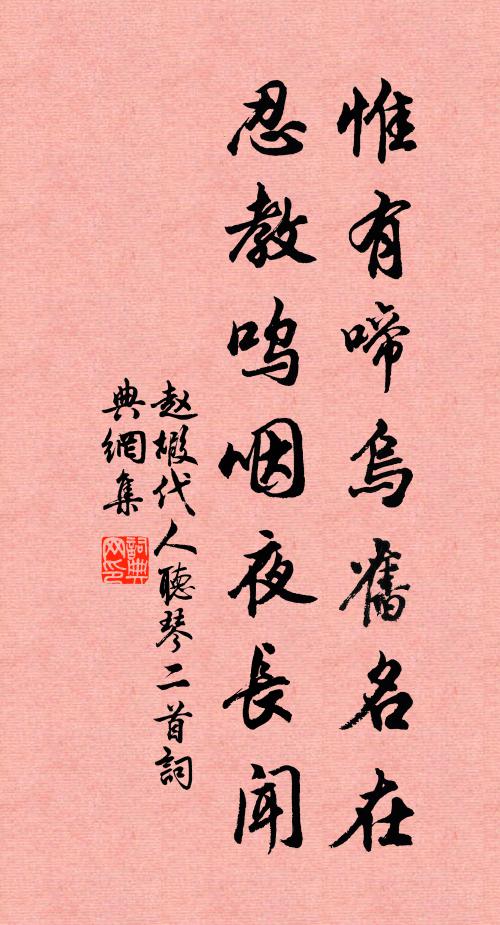 惟有啼烏舊名在
忍教鳴咽夜長聞
赵嘏代人聽琴二首詞
典網集
詞典網印